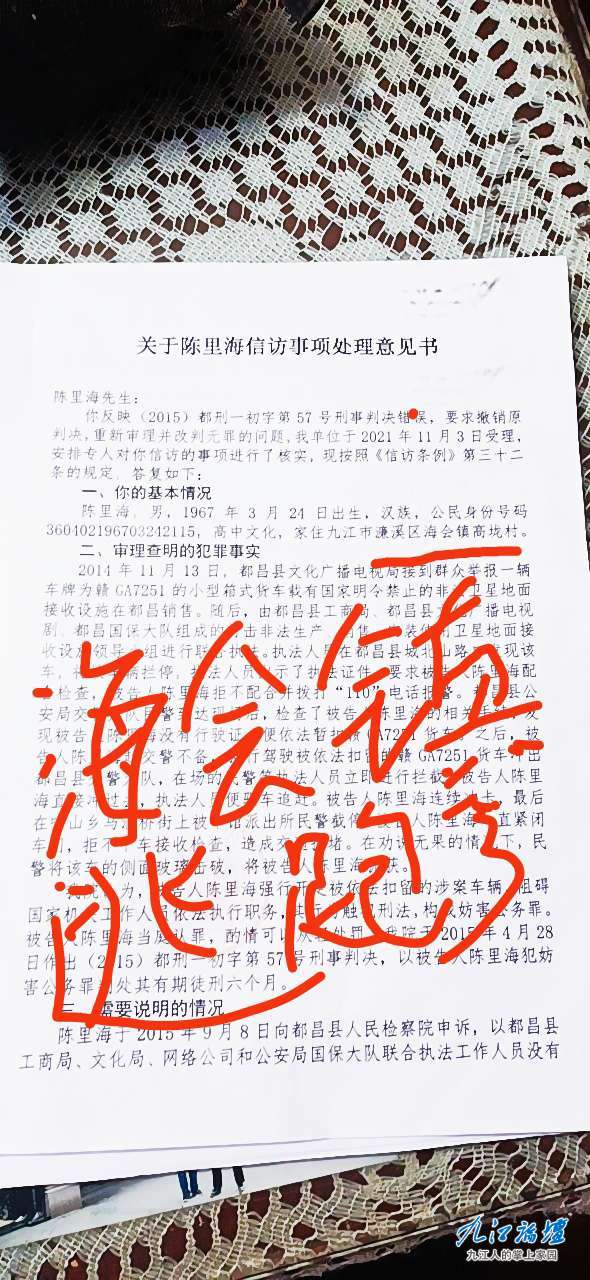 关于陈里海信访事项处理意见书
陈里海先生:
你反映（2015）都刑一初字第57号刑事判决错误，要求撤销原
判决，重新审理并改判无罪的问题，我单位于2021年11月3日受理，
安排专人对你信访的事项进行了核实，现按照《信访条例》第三十二
条的规定，答复如下:
一、你的基本情况
陈里海，男，1967年3月24日出生，汉族，公民身份号码
360402196703242115，高中文化，家住九江市濂溪区海会镇高垅村。
二、审理查明的犯罪事实
2014年11月13日，都昌县文化广播电视局接到群众举报一辆
车牌为赣GA7251的小型箱式货车载有国家明令禁止的非 卫星地面
接收设施在都昌销售。随后，由都昌县工商局、都昌县 广播电视
剧、都昌国保大队组成的 击非法生产、 售、 装 用卫星地面接
收设 领导 组进行联 执法。执法人员在都昌县城北山路 现该
车，将 辆拦停， 法人员 示了执法证件 要求被 人陈里海配
检查，被告 陈里海拒不配合并拨打“110”电话报警。 昌县公
安局交 队 警 达现 后，检查了被告 陈里海的相关手续，发
现被告 陈 没有行驶证 便依法暂扣赣GA7251货车 之后，被
告人陈 交警不备， 行驾驶被依法扣 的赣GA7251货车冲出
都昌县 警 队，在场的 警 执法人员立即进行拦截 被告人陈里
海直接冲 ，执法人 便驱车追赶。被告人陈里海连续 卡，最后
在 山乡 桥街上被 馆派出所民警截停 人陈里海 直紧闭
车 ，拒不 车接收检查，造成交 堵。在劝说无果的情况下，民
警将该车的侧面玻璃击破，将被告人陈里海 获。
院 为， 告人陈里海强行开 被依法扣留的涉案车辆 阻碍
国家机 工作人员依法执行职务，其 触 刑法，构成妨害公务罪。
被告 陈里海当庭认罪，酌情可 从 处罚 我院于2015年4月28
日作出（2015）都刑一初字第57号刑事判决，以被告人陈里海犯妨
害公务罪 处其有期徒刑六个月。
三 需要说明的情况
陈里海于2015年9月8日向都昌县人民检察院申诉，以都昌县
工商局、文化局、网络公司和公安局国保大队联合执法工作人员没有
海会镇
逃跑
九江论坛
九江人的掌上家园